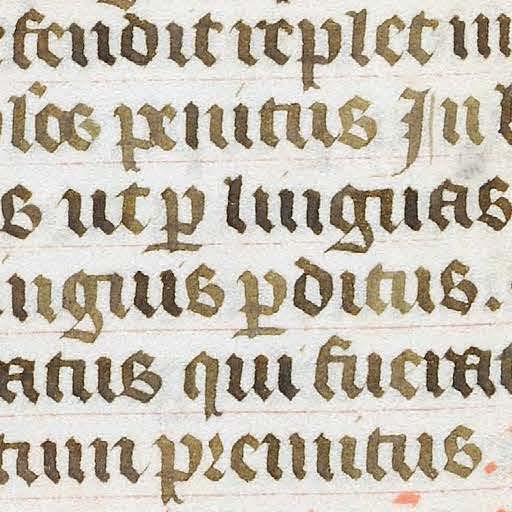 efendit replet in
ploes penitus In l
s ut ꝑ linguas
inguis ꝑditus.
atus qui fuerat
tum premitus